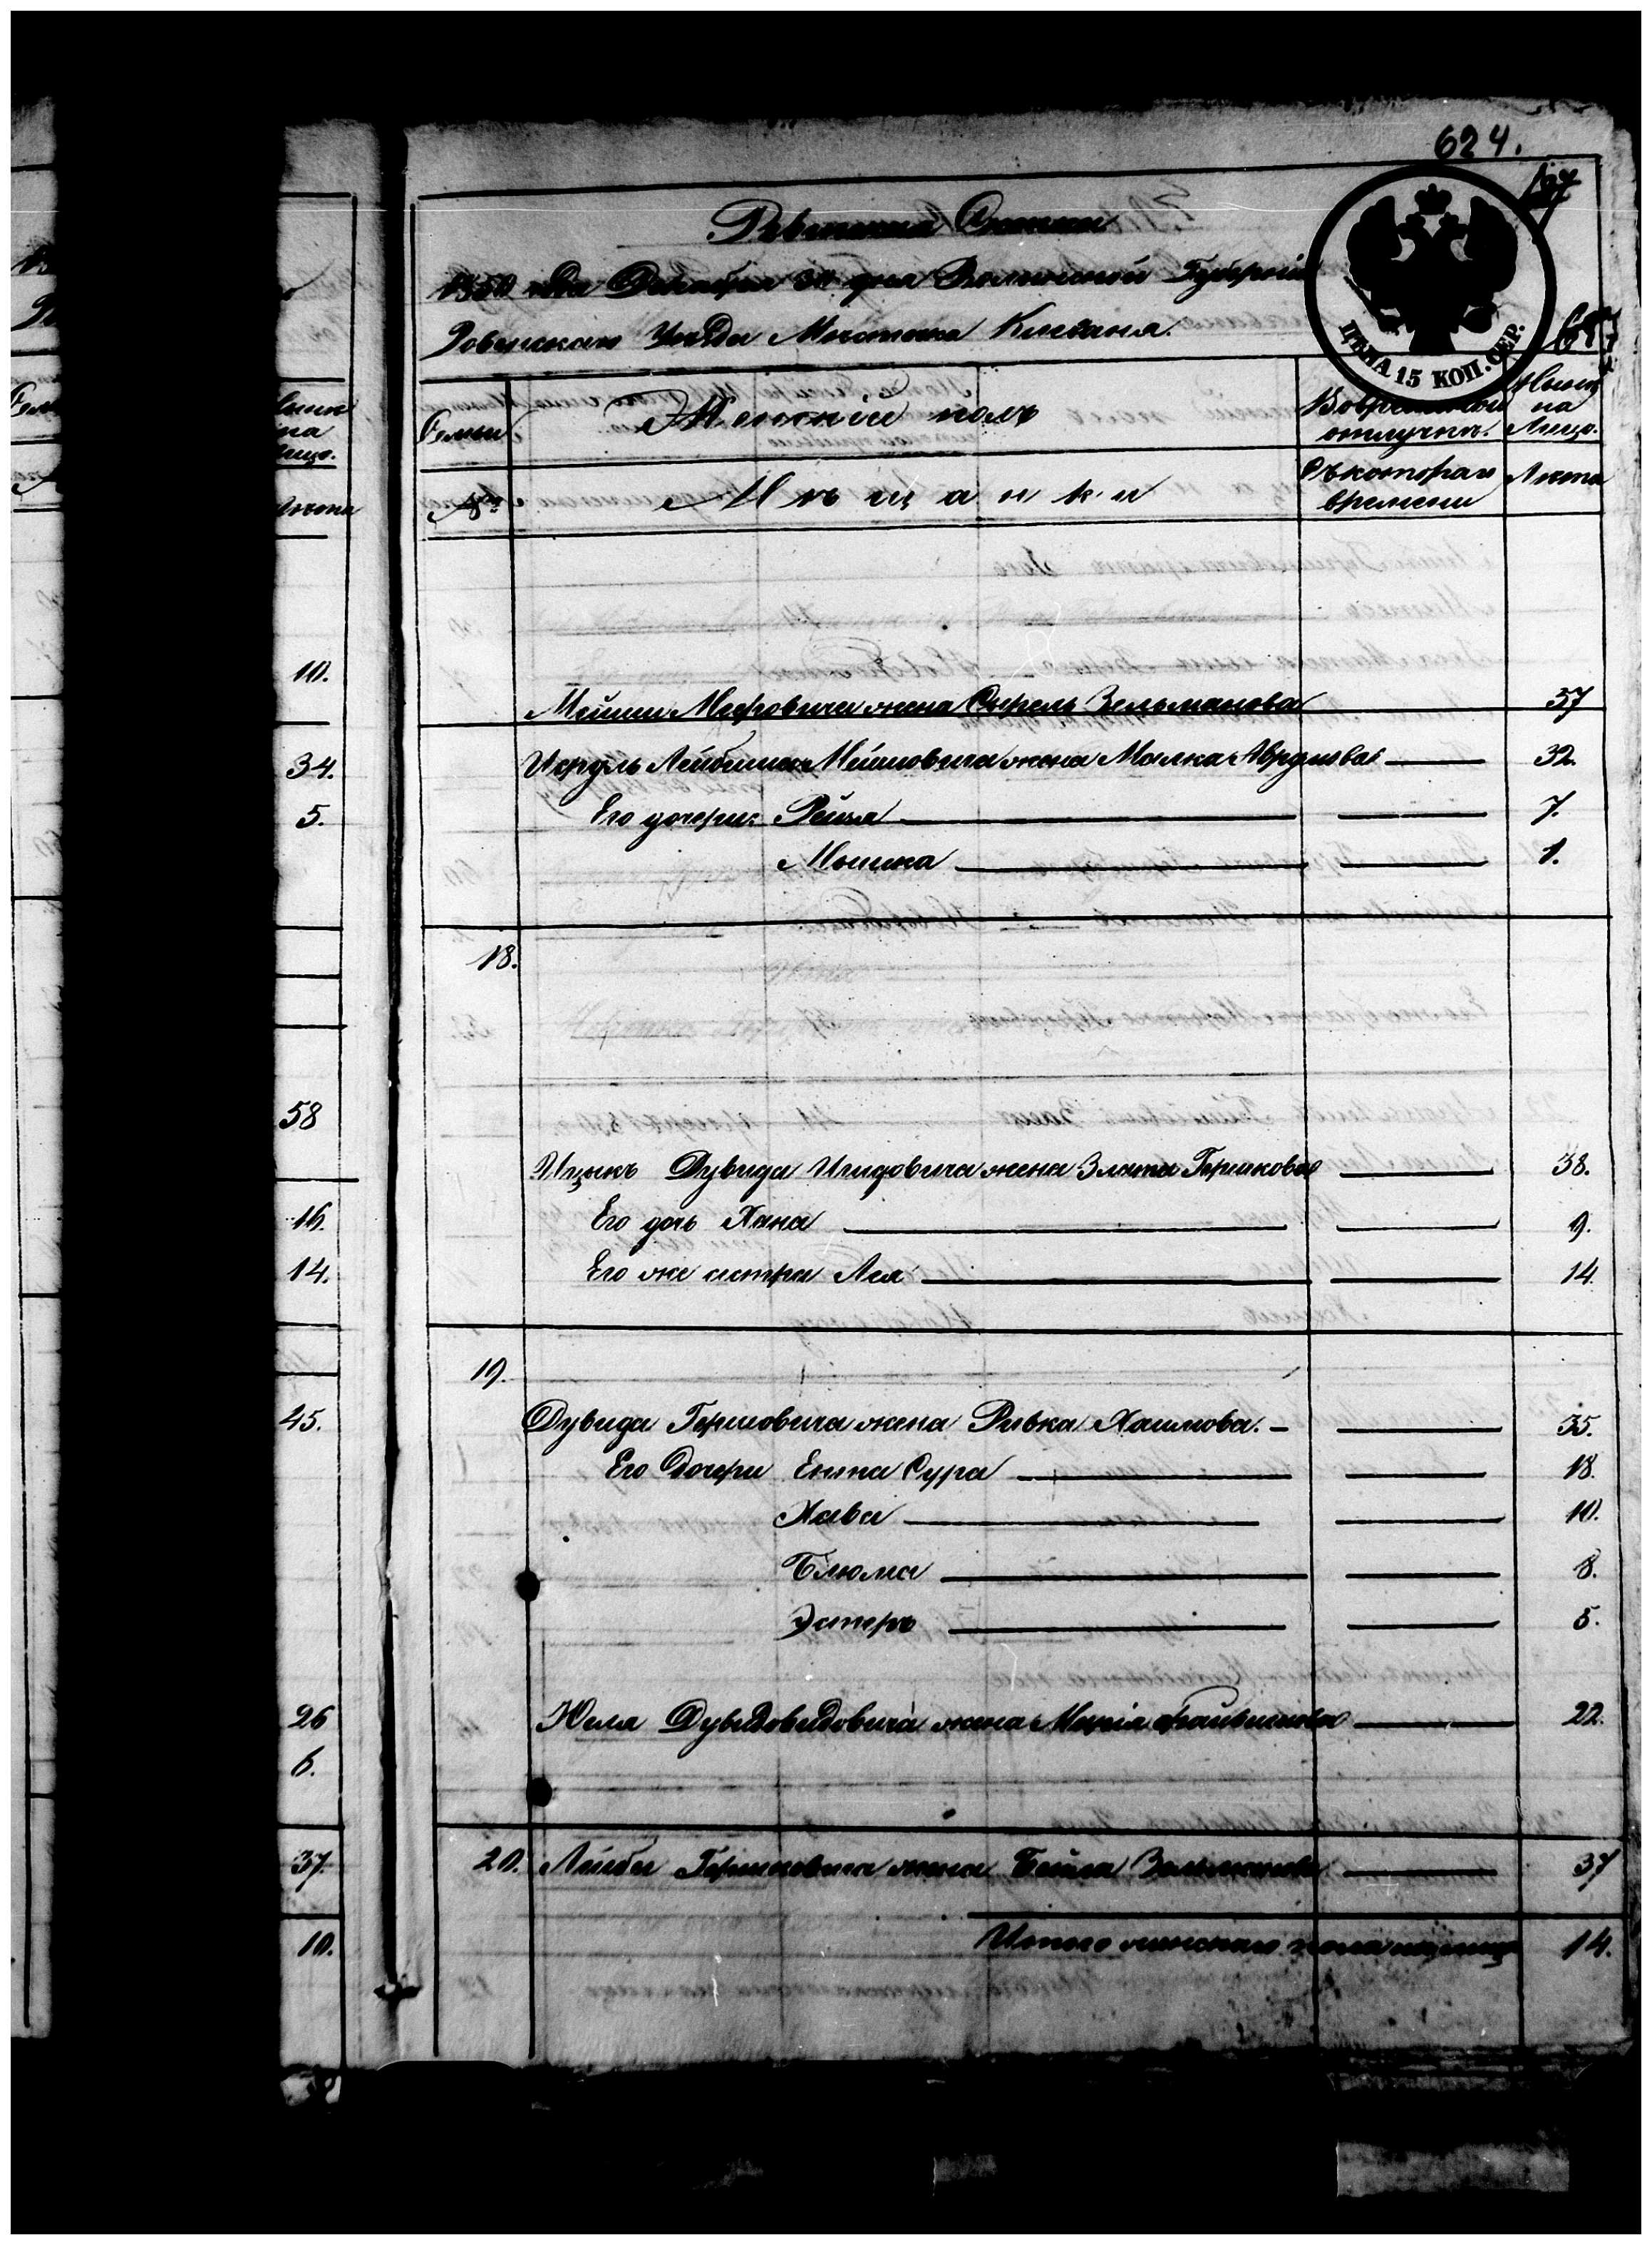 624.
Ревизская Сказка
1850 года Декабря 30 дня Волынской Губерніи
Ровенскаго Уѣзда Мѣстечка Клеваня.
ЦѢНА 15 КОП. СЕР.
Семьи Женскій полъ Во временной отлучкѣ. Нынѣ на Лицо.
№ Мѣщанки Съ котораго времени Лѣта
Мейши Меэровича жена Сырель Зельманова 57
Исруль Лейбиша Мейшовича жена Малка 32.
Его дочери: Рейзя 7.
1.
18.
Ицыкъ Дувида жена Злата Гершкова 38.
Его дочь Хана 9.
Его же сестра Лея 14.
19.
Дувида Гершовича жена Ривка Хаимова. 35.
Его Дочери Енна Сура 18.
Хава 10.
Блюма 8.
Эстеръ 5.
Юля Дувидовидовича жена Марія 22.
20. Лейбы Гершковича жена Бейла Зельманова 37
Итого женскаго пола на лицо 14.
10.
34.
5.
58
16.
14.
45.
26
6.
37.
10.